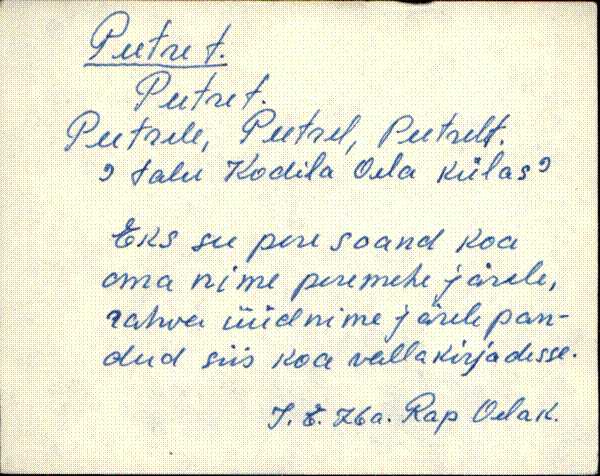 Peetre t.
Peetre t.
Peetrele, Peetrel, Peetrelt.
talu Kodila Oela külas
Eks see pere soand koa
oma nime peremehe järele,
rahva üüdnime järele pan-
dud siis koa vallakirjadesse.
J. E. 76a. Rap Oelak.